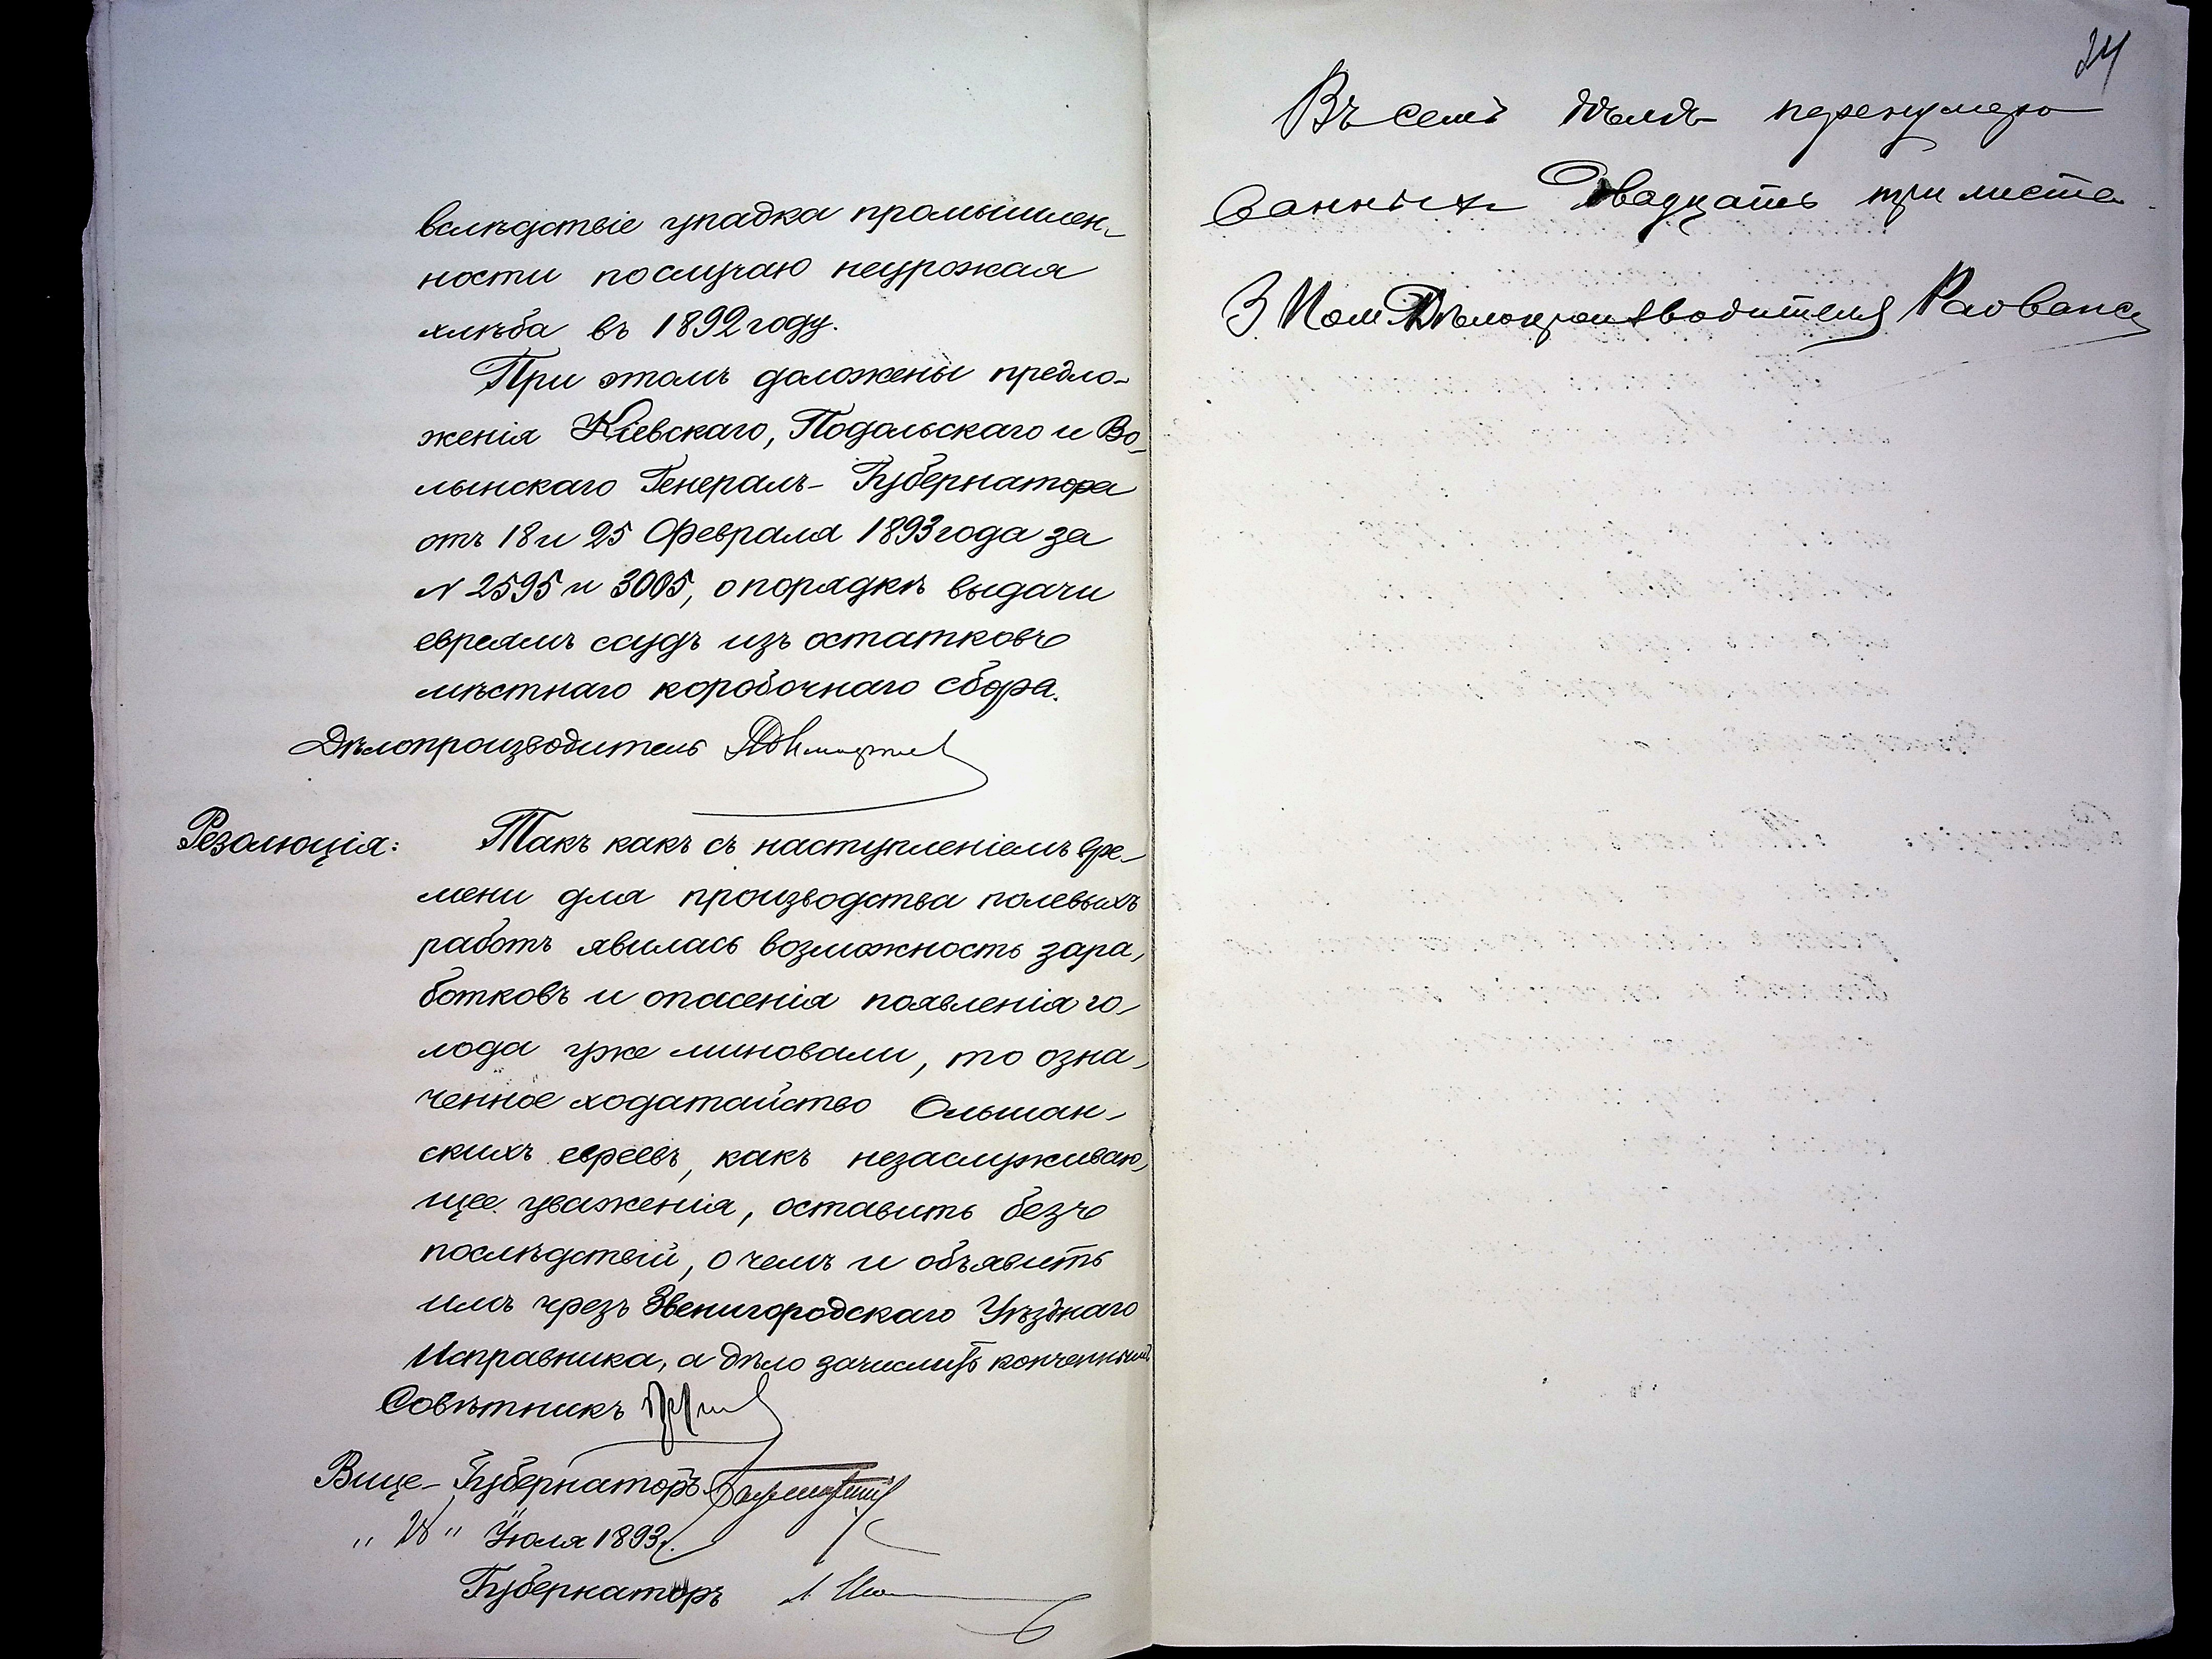 вслѣдствіе упадка промышлен-
ности по случаю неурожая
хлѣба въ 1892 году.
При этомъ доложены предло-
женія Кіевскаго, Подольскаго и Во-
лынскаго Генералъ-Губернатора
отъ 18 и 25 Февраля 1893 года за
№ 2595 и 3005, о порядкѣ выдачи
евреямъ ссудъ изъ остатковъ
мѣстнаго коробочнаго сбора.
Дѣлопроизводитель
Резолюція: Такъ какъ съ наступленіемъ вре-
мени для производства полевыхъ
работъ явилась возможность зара-
ботковъ и опасенія появленія го-
лода уже миновали, то озна-
ченное ходатайство Ольшан-
скихъ евреевъ, какъ незаслуживаю-
щее уваженія, оставить безъ
послѣдствій, о чемъ и объявить
имъ чрезъ Звенигородскаго Уѣзднаго
Исправника, а дѣло зачислить конченнымъ.
Совѣтникъ
Вице-Губернаторъ
"28" Іюля 1893 г.
Губернаторъ
24
Въ семъ дѣлѣ перенумеро
ванныхъ Двадцать три листа.
З. Пом. Дѣлопроизводителя